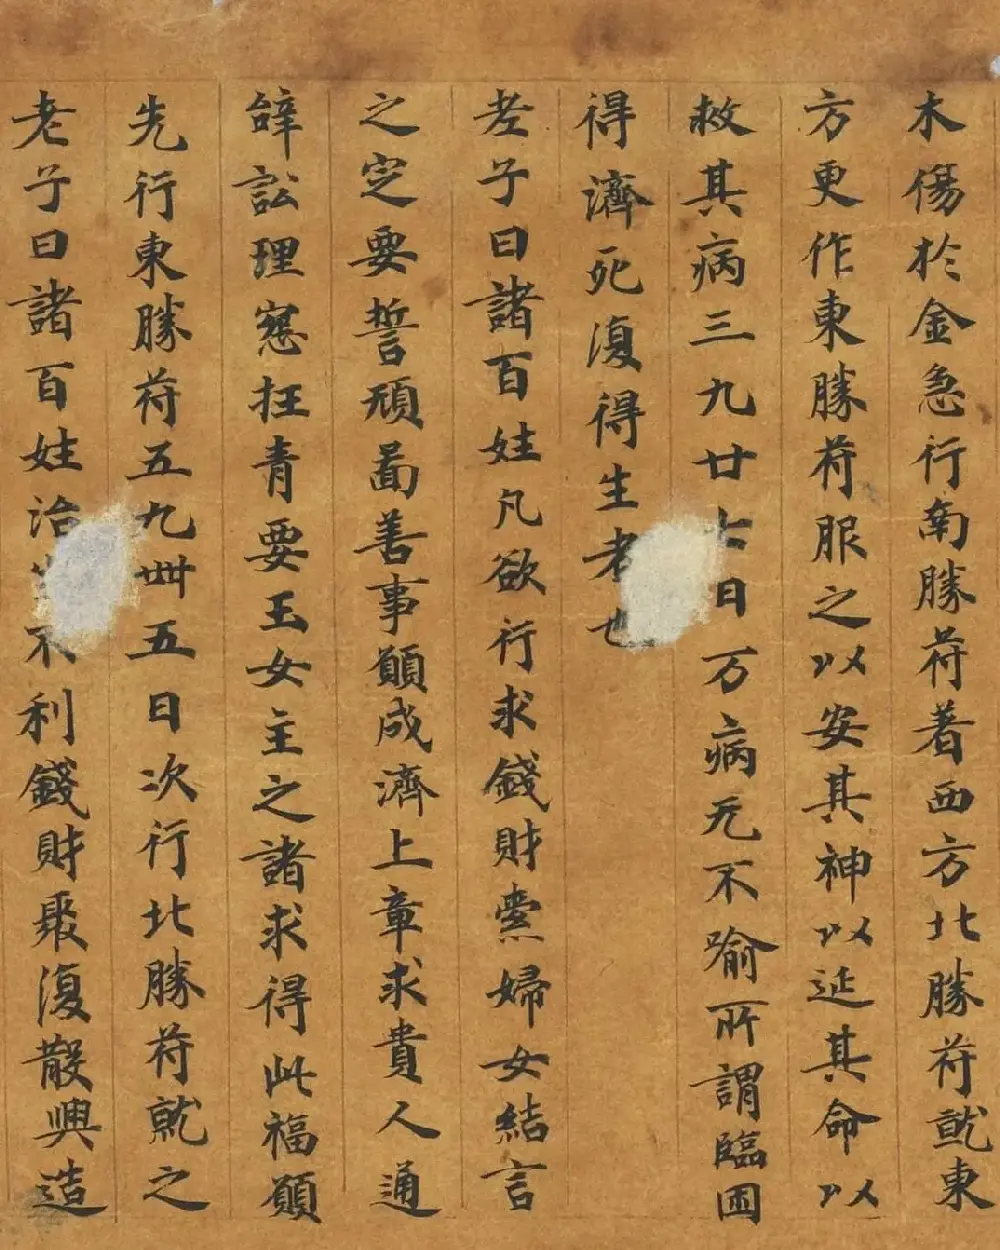 木傷於金急行南勝苻著西方北勝苻就東
方更作東勝苻服之以安其神以延其命以
救其病三九廿七日万病无不喻所謂臨困
得濟死復得生者也
老子曰諸百姓凡欲行求錢財索婦女結言
之定要誓頑嚚善事願成濟上章求貴人通
辝訟理窓抂青要玉女主之諸求得此福願
先行東勝苻五九卌五日次行北勝苻就之
老子曰諸百姓治不利錢財聚復散興造